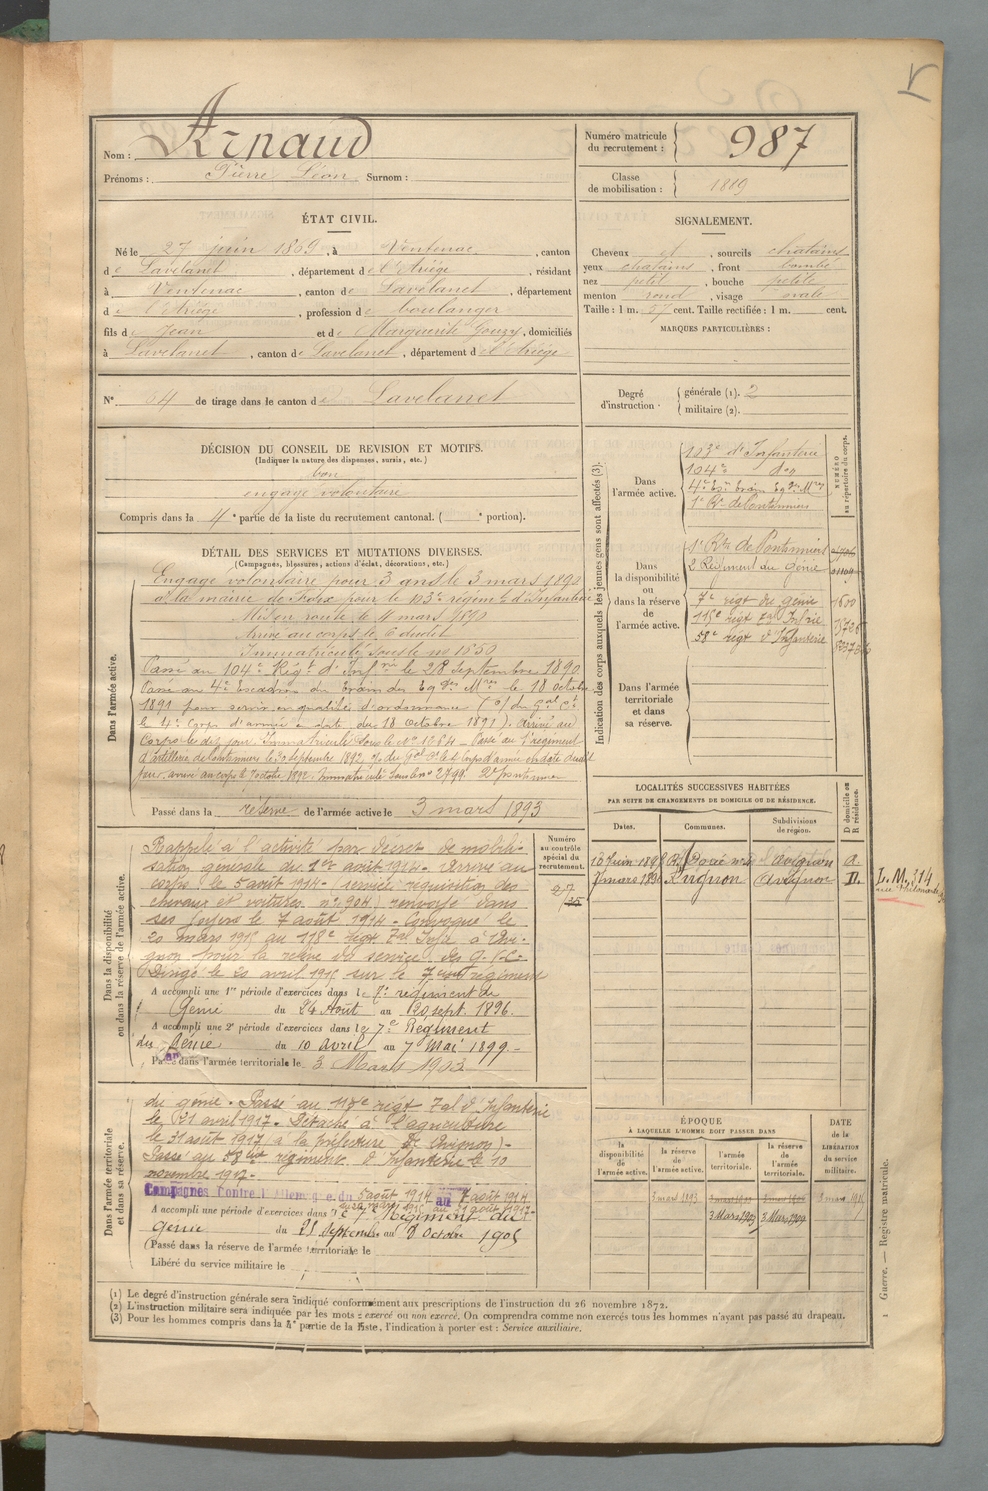 Nom : Arnaud
Prénoms : Pierre Léon Surnom :
Numéro matricule du recrutement : 987
Classe de mobilisation : 1889
ÉTAT CIVIL.
Né le 27 juin 1869, à Ventenac, canton
de Lavelanet, département de l'Ariége, résidant
à Ventenac, canton de Lavelanet, département
de l'Ariége, profession de boulanger
fils de Jean et de Marguerite Gouzy, domiciliés
à Lavelanet, canton de Lavelanet, département de l'Ariége
N° 64 de tirage dans le canton de Lavelanet
SIGNALEMENT.
Cheveux et, sourcils chatains
yeux chatains, front bombé
nez petit, bouche petite
menton rond, visage ovale
Taille : 1 m. 67 cent. Taille rectifiée : 1 m. cent.
MARQUES PARTICULIÈRES :
Degré d'instruction : générale (1). 2
militaire (2).
DÉCISION DU CONSEIL DE REVISION ET MOTIFS.
(Indiquer la nature des dispenses, sursis, etc.)
bon
engagé volontaire
Compris dans la 4e partie de la liste du recrutement cantonal. ( e portion).
DÉTAIL DES SERVICES ET MUTATIONS DIVERSES.
(Campagnes, blessures, actions d'éclat, décorations, etc.)
Dans l'armée active.
Engagé volontaire pour 3 ans le 3 mars 1890
à la mairie de Foix pour le 103e régiment d'Infanterie
Mis en route le 4 mars 1890
Arrivé au corps le 6 dudit
Immatriculé sous le no 1850
Passé au 104e Régt d'Infrie le 28 Septembre 1890
Passé au 4e escadron du train des Eqges Mres le 18 octobre
1891 pour servir en qualité d'ordonnance
le 4e Corps d'armée en date du 18 Octobre 1891). Arrivé au
Corps le dit jour. Immatriculé sous le No 1264 Passé au 1er régiment
d'artillerie de Pontonniers le 30 septembre 1892, 4e Corps d'armée en date dudit
jour. arrivé au corps le 1er octobre 1892. Immatriculé sous le no 2799. 2e Pontonnier
Passé dans la réserve de l'armée active le 3 mars 1893
Dans la disponibilité ou dans la réserve de l'armée active.
Numéro au contrôle spécial du recrutement.
Rappelé à l'activité par décret de mobili-
sation générale du 1er août 1914. Arrivé au
corps le 5 août 1914. (service réquisition des
chevaux et voitures no 904) renvoyé dans
ses foyers le 7 août 1914. Convoqué le
20 mars 1915 au 118e régt Tal Infie à Avi-
gnon pour la relève du service des G.V.C.
Dirigé le 20 avril 1915 sur le 7ème régiment
A accompli une 1re période d'exercices dans le 7e régiment de
Génie du 24 Août au 20 sept. 1896.
A accompli une 2e période d'exercices dans le 7e Régiment
du Génie du 10 avril au 7 Mai 1899.
Passé dans l'armée territoriale le 3 Mars 1903
Dans l'armée territoriale et dans sa réserve.
du génie. Passé au 118e régt Tal d'Infanterie
le 21 avril 1917. Détaché à l'agriculture
le 31 août 1917 à la préfecture d'Avignon).
Passé au 58ème régiment d'Infanterie le 10
novembre 1917.
Campagnes Contre l'Allemagne du 5 août 1914 au 7 août 1914
A accompli une période d'exercices dans le 7e Régiment du
génie du 25 Septembre au 8 Octobre 1905
Passé dans la réserve de l'armée territoriale le
Libéré du service militaire le
Indication des corps auxquels les jeunes gens sont affectés (3).
NUMÉRO au répertoire du corps.
Dans l'armée active.
103e d'Infanterie
104e do
4e Esn train Eqges Mres
1er Rt de Pontonniers
Dans la disponibilité ou dans la réserve de l'armée active.
1er Rt de Pontonniers
2 Régiment du Génie
7e régt du génie 1600
118e régt Tal Infrie
58e régt d'Infanterie
Dans l'armée territoriale et dans sa réserve.
LOCALITÉS SUCCESSIVES HABITÉES
PAR SUITE DE CHANGEMENTS DE DOMICILE OU DE RÉSIDENCE.
Dates. Communes. Subdivisions de région. D domicile ou R résidence.
7 mars 1896 Avignon Avignon D.
L.M. 314
ÉPOQUE
À LAQUELLE L'HOMME DOIT PASSER DANS
DATE de la LIBÉRATION du service militaire.
la disponibilité de l'armée active.
la réserve de l'armée active.
l'armée territoriale.
la réserve de l'armée territoriale.
3 mars 1893
3 Mars 1903 3 Mars 1909
(1) Le degré d'instruction générale sera indiqué conformément aux prescriptions de l'instruction du 26 novembre 1872.
(2) L'instruction militaire sera indiquée par les mots : exercé ou non exercé. On comprendra comme non exercés tous les hommes n'ayant pas passé au drapeau.
(3) Pour les hommes compris dans la 4e partie de la liste, l'indication à porter est : Service auxiliaire.
Guerre. — Registre matricule.